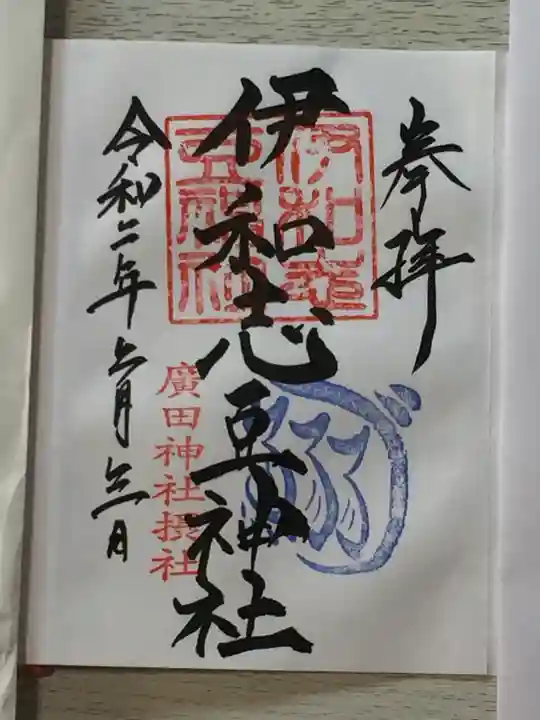 奉拝
伊和志豆神社
伊和志
豆神社
廣田神社摂社
令和二年六月六日